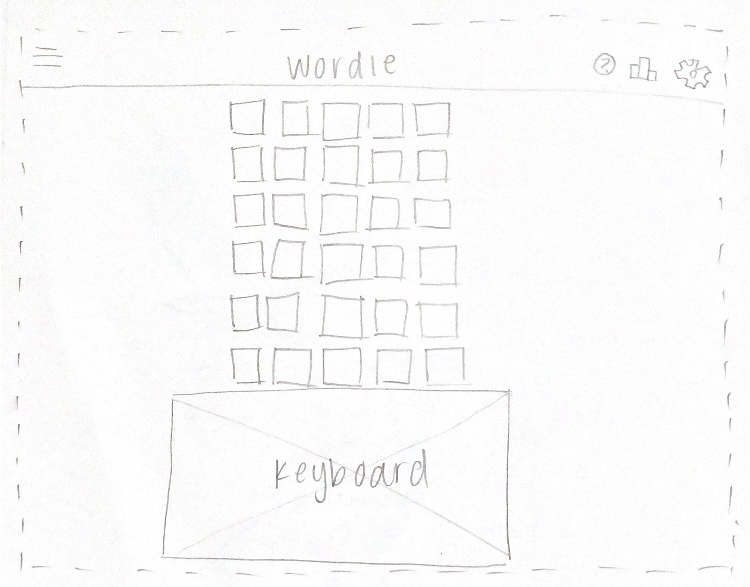 Wordle
?
Keyboard